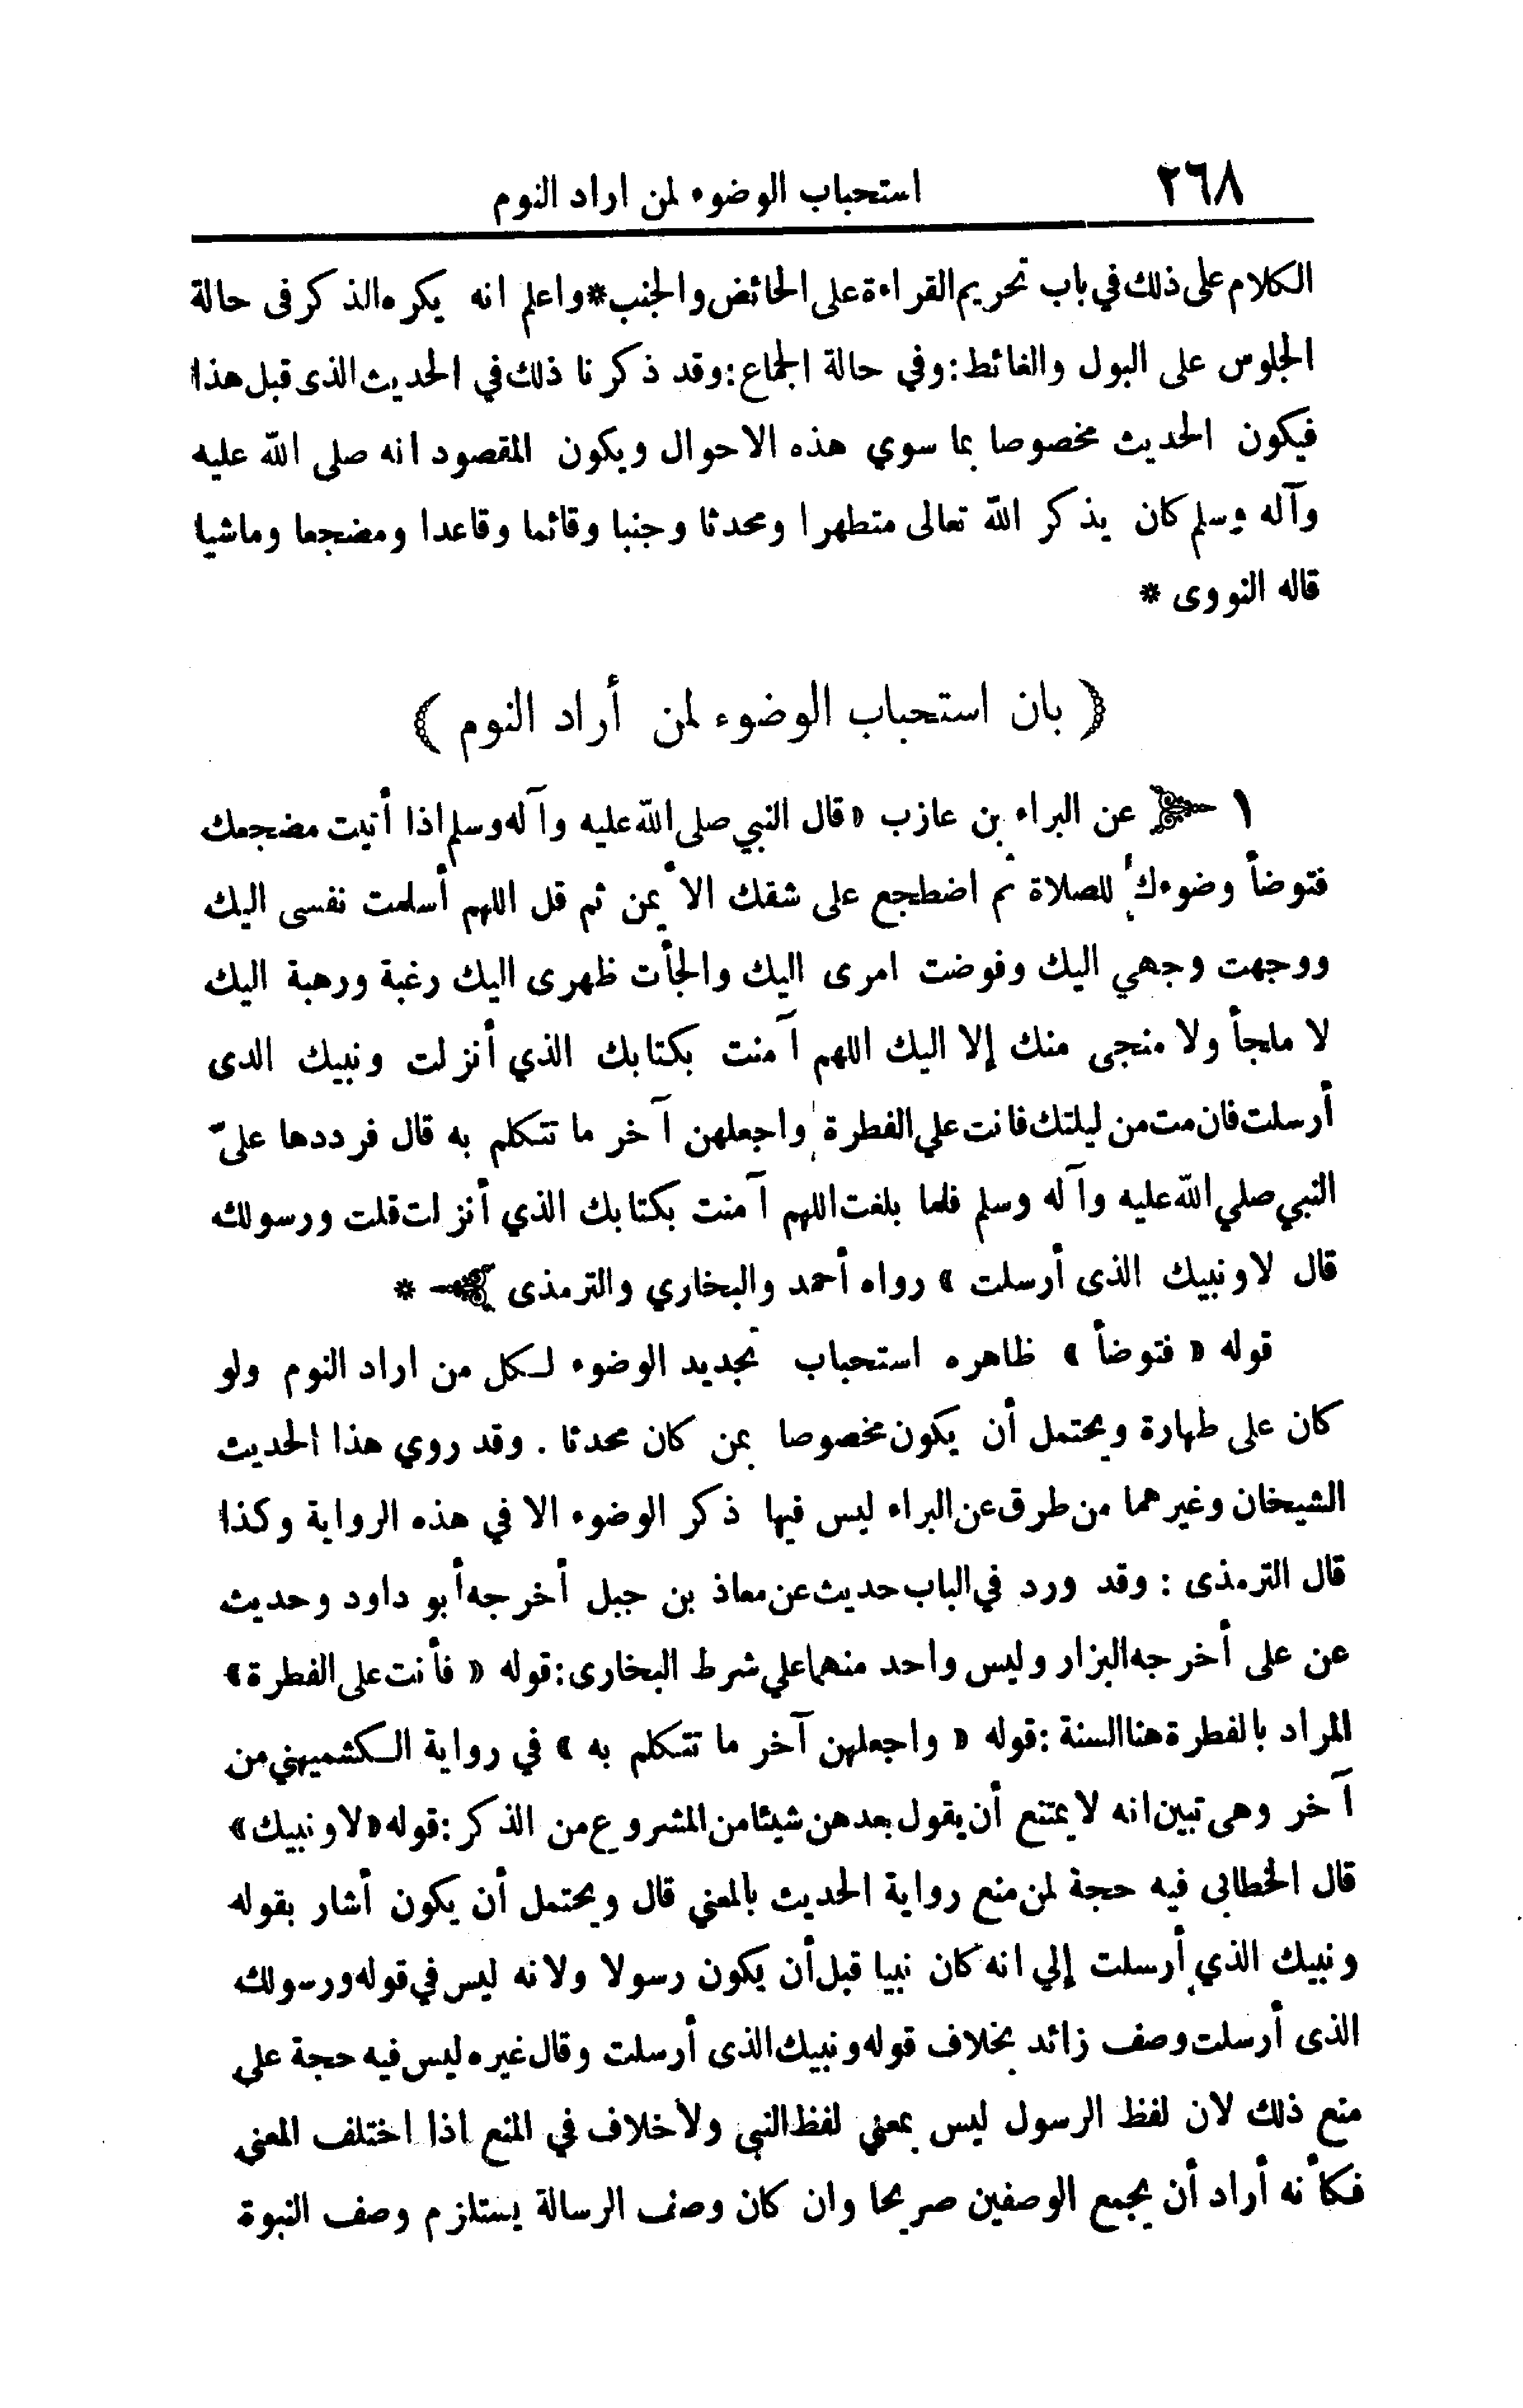 ٢٦٨ استحباب الوضوء لمن اراد النوم
الكلام على ذلك في باب تحريم القراءة على الحائض والجنب * واعلم انه يكره الذكر فى حالة
الجلوس على البول والغائط : وفي حالة الجماع : وقد ذكرنا ذلك في الحديث الذى قبل هذا
فيكون الحديث مخصوصا بما سوي هذه الاحوال ويكون المقصود انه صلى الله عليه
وآله وسلم كان يذكر الله تعالى متطهرا ومحدثا وجنبا وقائما وقاعدا ومضجعا وماشيا
قاله النووى *
﴿ بان استحباب الوضوء لمن أراد النوم ﴾
١ عن البراء بن عازب « قال النبي صلى الله عليه وآله وسلم اذا أتيت مضجعك
فتوضأ وضوءك للصلاة ثم اضطجع على شقك الأيمن ثم قل اللهم أسلمت نفسى اليك
ووجهت وجهي اليك وفوضت امرى اليك والجأت ظهرى اليك رغبة ورهبة اليك
لا ملجأ ولا منجى منك إلا اليك اللهم آمنت بكتابك الذي أنزلت ونبيك الدى
أرسلت فان مت من ليلتك فانت علي الفطرة واجعلهن آخر ما تتكلم به قال فرددها علىّ
النبي صلي الله عليه وآله وسلم فلما بلغت اللهم آمنت بكتابك الذي أنزلت قلت ورسولك
قال لا ونبيك الذى أرسلت » رواه أحمد والبخاري والترمذى *
قوله « فتوضأ » ظاهره استحباب تجديد الوضوء لكل من اراد النوم ولو
كان على طهارة ويحتمل أن يكون مخصوصا بمن كان محدثا . وقد روي هذا الحديث
الشيخان وغيرهما من طرق عن البراء ليس فيها ذكر الوضوء الا في هذه الرواية وكذا
قال الترمذى : وقد ورد في الباب حديث عن معاذ بن جبل أخرجه أبو داود وحديث
عن على أخرجه البزار وليس واحد منهما علي شرط البخارى : قوله « فأنت على الفطرة »
المراد بالفطرة هنا السنة : قوله « واجعلهن آخر ما تتكلم به » في رواية الكشميهني من
آخر وهى تبين انه لا يمتنع أن يقول بعدهن شيئا من المشروع من الذكر : قوله « لا ونبيك »
قال الخطابى فيه حجة لمن منع رواية الحديث بالمعني قال ويحتمل أن يكون أشار بقوله
ونبيك الذي أرسلت إلي انه كان نبيا قبل أن يكون رسولا ولانه ليس في قوله ورسولك
الذى أرسلت وصف زائد بخلاف قوله ونبيك الذى أرسلت وقال غيره ليس فيه حجة على
منع ذلك لان لفظ الرسول ليس بمعني لفظ النبى ولا خلاف في المنع اذا اختلف المعنى
فكأنه أراد أن يجمع الوصفين صريحا وان كان وصف الرسالة يستلزم وصف النبوة